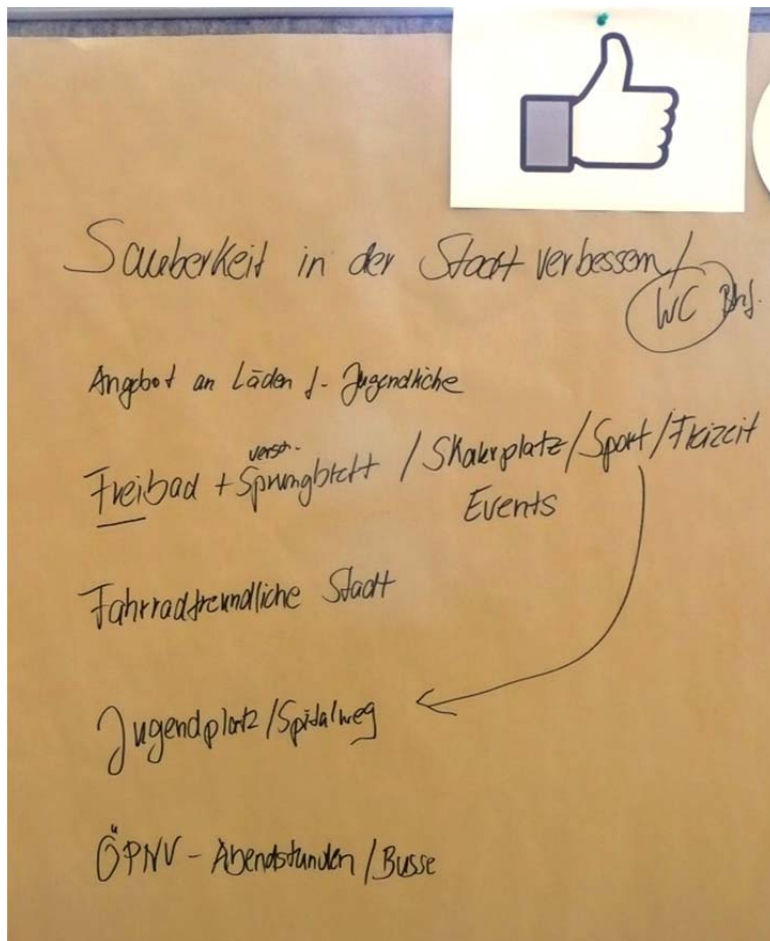 Sauberkeit in der Stadt verbessern /
WC Bhf.
Angebot an Läden f. Jugendliche
versch.
Freibad + Sprungbrett / Skaterplatz / Sport / Freizeit
Events
Fahrradfreundliche Stadt
Jugendplatz / Spitalweg
ÖPNV - Abendstunden / Busse